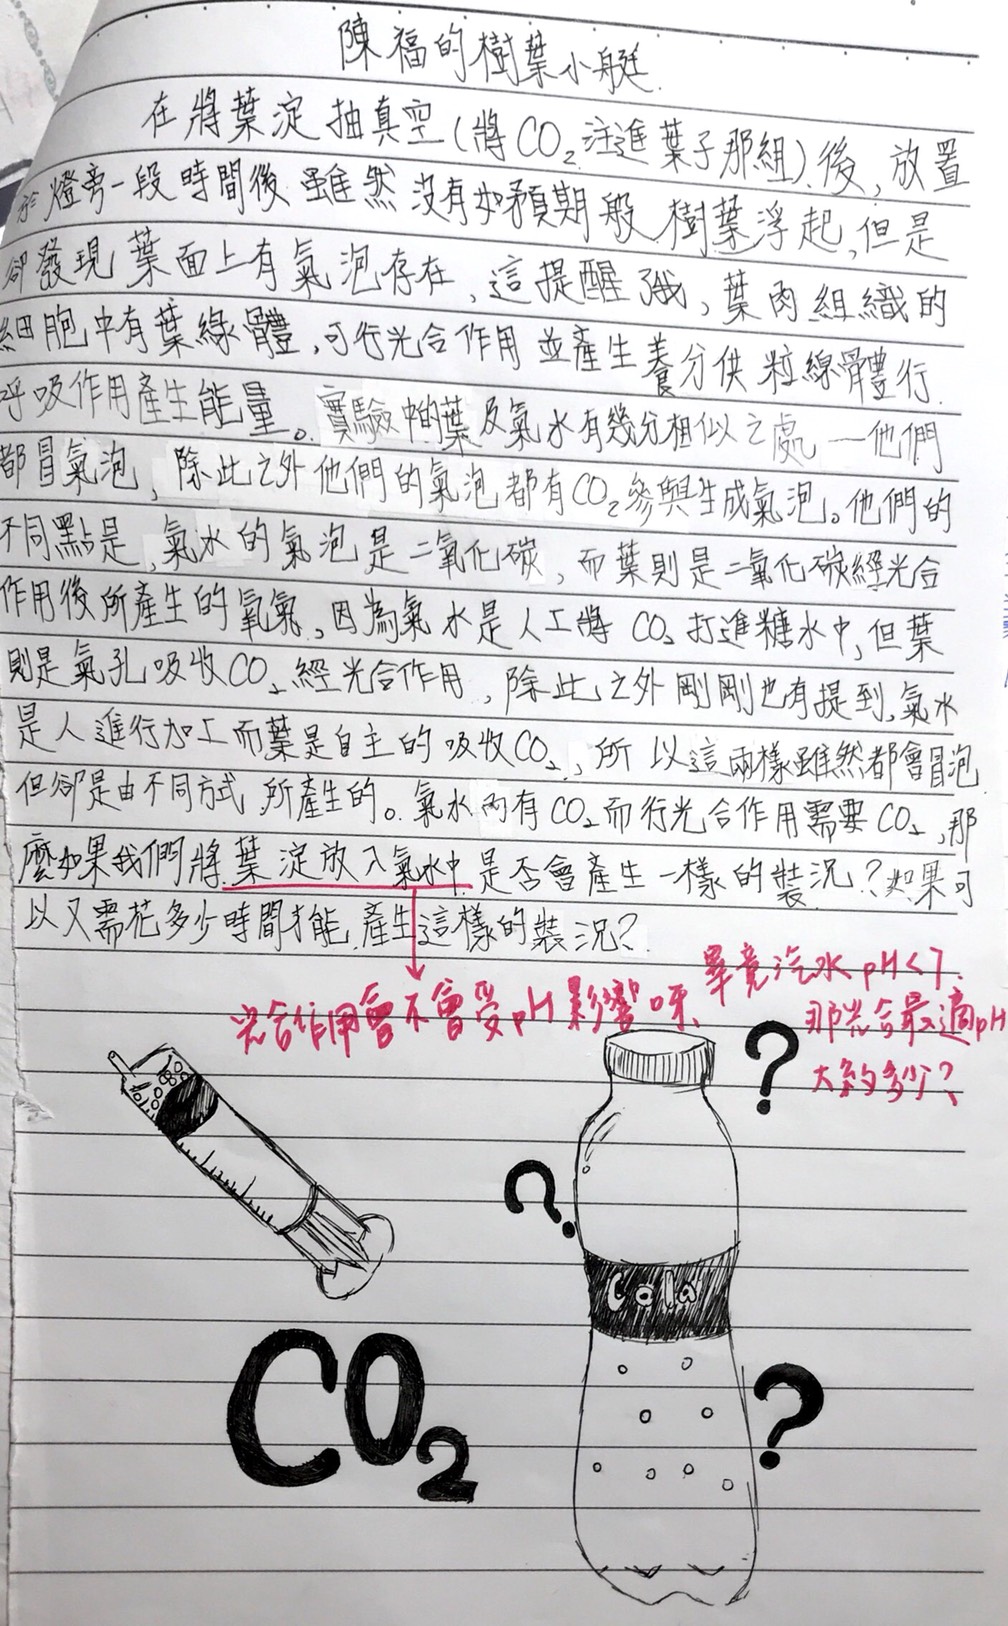 陳福的樹葉小艇
在將葉淀抽真空(將CO₂注進葉子那組)後,放置
於燈旁一段時間後雖然沒有如預期般樹葉浮起,但是
卻發現葉面上有氣泡存在,這提醒我,葉肉組織的
細胞中有葉綠體,可行光合作用並產生養分供粒線體行
呼吸作用產生能量。實驗中的葉及氣水有幾分相似之處—他們
都冒氣泡,除此之外他們的氣泡都有CO₂參與生成氣泡。他們的
不同點是,氣水的氣泡是二氧化碳,而葉則是二氧化碳經光合
作用後所產生的氧氣,因為氣水是人工將CO₂打進糖水中,但葉
則是氣孔吸收CO₂經光合作用,除此之外剛剛也有提到,氣水
是人進行加工而葉是自主的吸收CO₂,所以這兩樣雖然都會冒泡
但卻是由不同方式所產生的。氣水內有CO₂而行光合作用需要CO₂,那
麼如果我們將葉淀放入氣水中是否會產生一樣的裝況?如果可
以又需花多少時間才能產生這樣的裝況?
光合作用會不會受pH影響呀、畢竟汽水pH<7.
那光合最適pH
大約多少?
?
?
Cola
CO₂
?